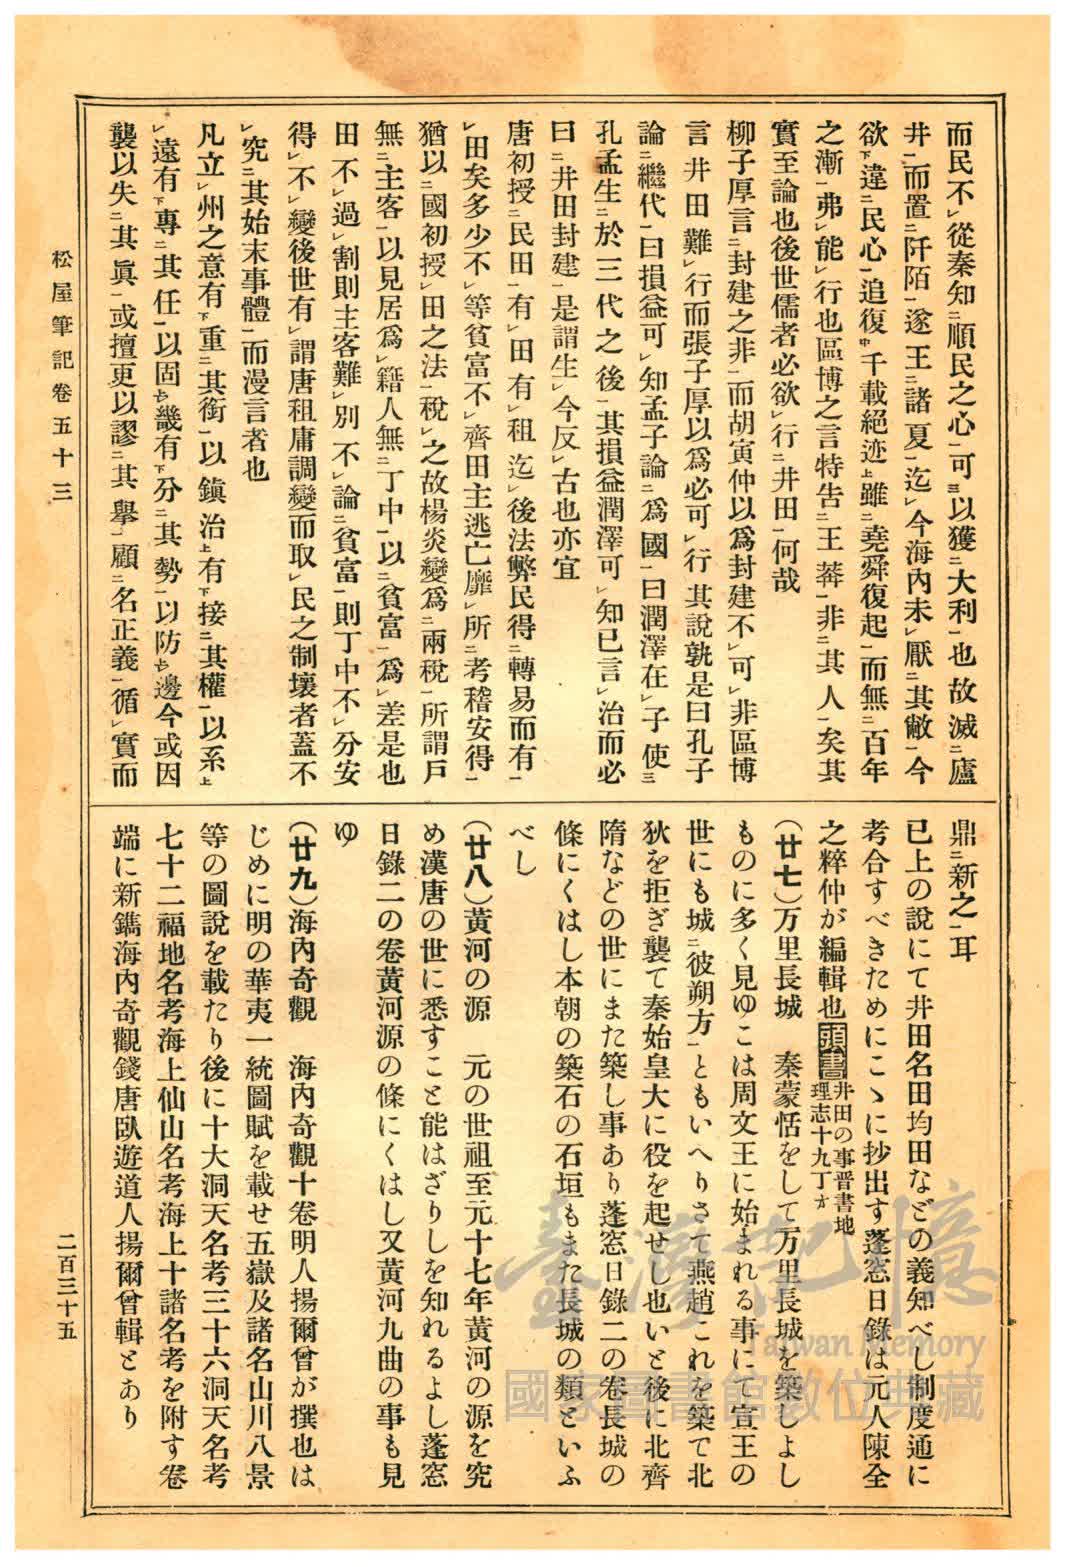 而民不㆑從秦知㆘順民之心㆒可㆔以獲㆓大利㆒也故滅㆓廬
井㆒而置㆓阡陌㆒遂王㆓諸夏㆒迄㆑今海內未㆑厭㆓其敝㆒今
欲㆘違㆓民心㆒追復㆗千載絕迹㆖雖㆓堯舜復起㆒而無㆓百年
之漸㆒弗㆑能㆑行也區博之言特告㆓王莽㆒非㆓其人㆒矣其
實至論也後世儒者必欲㆑行㆓井田㆒何哉
柳子厚言㆓封建之非㆒而胡寅仲以爲封建不㆑可㆑非區博
言井田難㆑行而張子厚以爲必可㆑行其說孰是曰孔子
論㆓繼代㆒曰損益可㆑知孟子論㆓爲國㆒曰潤澤在㆑子使㆔
孔孟生㆓於三代之後㆒其損益潤澤可㆑知已言㆑治而必
曰㆓井田封建㆒是謂生㆑今反㆑古也亦宜
唐初授㆓民田㆒有㆑田有㆑租迄㆑後法弊民得㆓轉易而有㆒
㆑田矣多少不㆑等貧富不㆑齊田主逃亡靡㆑所㆓考稽安得㆒
猶以㆓國初授㆑田之法㆒稅㆑之故楊炎變爲㆓兩稅㆒所謂戶
無㆓主客㆒以見居爲㆑籍人無㆓丁中㆒以㆓貧富㆒爲㆑差是也
田不㆑過㆑割則主客難㆑別不㆑論㆓貧富㆒則丁中不㆑分安
得㆑不㆑變後世有㆑謂唐租庸調變而取㆑民之制壞者蓋不
㆑究㆓其始末事體㆒而漫言者也
凡立㆑州之意有㆘重㆓其銜㆒以鎮治㆖有㆘接㆓其權㆒以系㆖
㆑遠有㆘專㆓其任㆒以固㆖㆑畿有㆘分㆓其勢㆒以防㆖㆑邊今或因
襲以失㆓其眞㆒或擅更以謬㆓其擧㆒顧㆓名正義㆒循㆑實而
鼎㆓新之㆒耳
已上の說にて井田名田均田などの義知べし制度通に
考合すべきためにこゝに抄出す蓬窓日錄は元人陳全
之粹仲が編輯也頭書井田の事晋書地理志十九丁ォ
(廿七)万里長城　秦蒙恬をして万里長城を築しよし
ものに多く見ゆこは周文王に始まれる事にて宣王の
世にも城㆓彼朔方㆒ともいへりさて燕趙これを築て北
狄を拒ぎ襲て秦始皇大に役を起せし也いと後に北齊
隋などの世にまた築し事あり蓬窓日錄二の卷長城の
條にくはし本朝の築石の石垣もまた長城の類といふ
べし
(廿八)黃河の源　元の世祖至元十七年黃河の源を究
め漢唐の世に悉すこと能はざりしを知れるよし蓬窓
日錄二の卷黃河源の條にくはし又黃河九曲の事も見
ゆ
(廿九)海內奇觀　海內奇觀十卷明人揚爾曾が撰也は
じめに明の華夷一統圖賦を載せ五嶽及諸名山川八景
等の圖說を載たり後に十大洞天名考三十六洞天名考
七十二福地名考海上仙山名考海上十諸名考を附す卷
端に新鐫海內奇觀錢唐臥遊道人揚爾曾輯とあり
松屋筆記卷五十三
二百三十五
臺灣記憶
Taiwan Memory
國家圖書館數位典藏